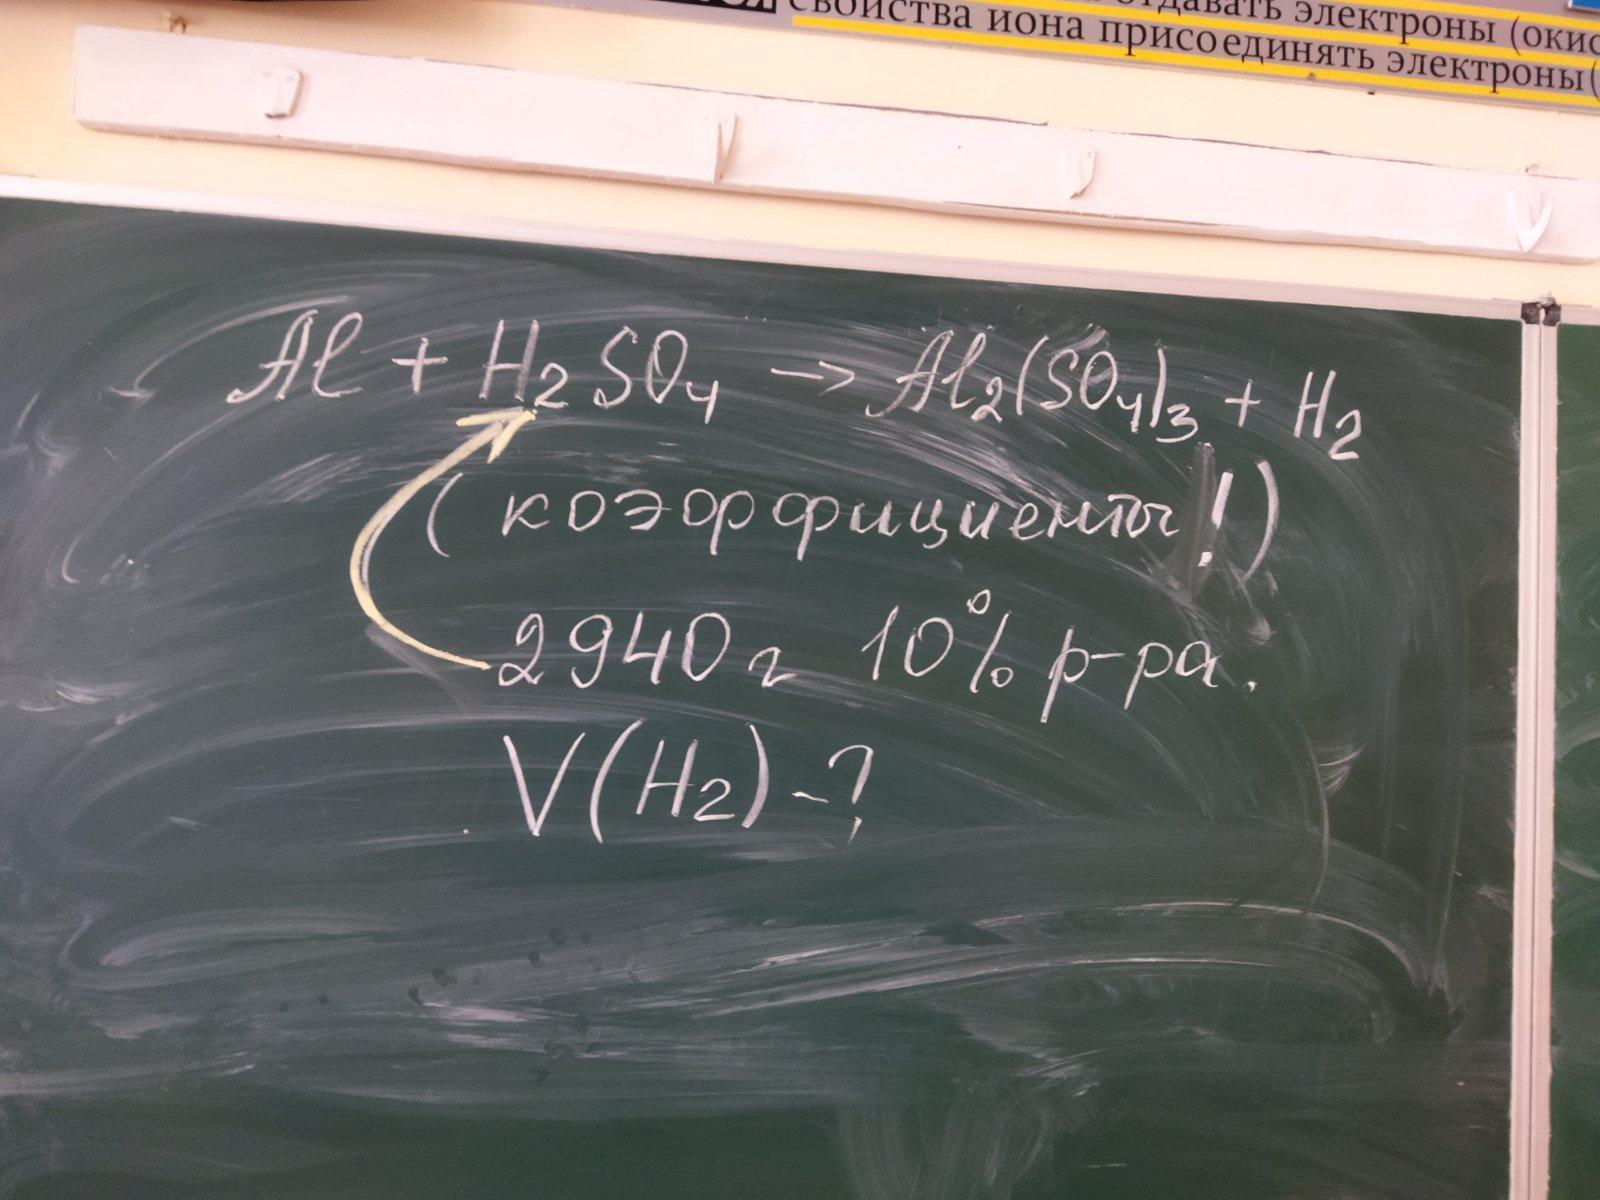 отдавать электроны (окис
свойства иона присоединять электроны(
Al + H₂SO₄ → Al₂(SO₄)₃ + H₂
(коэффициенты!)
2940 г 10% р-ра.
V(H₂) - ?